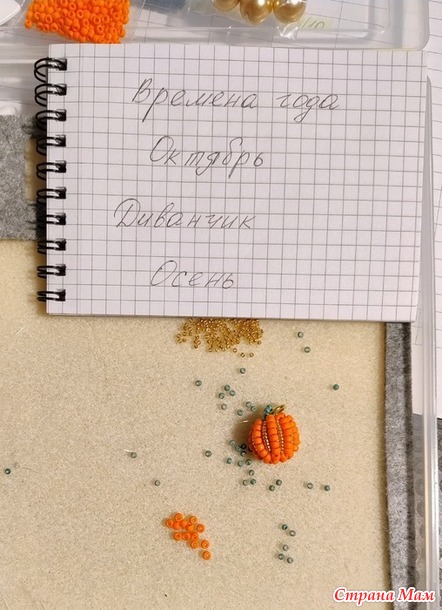 Времена года
Октябрь
Диванчик
Осень
Страна Мам